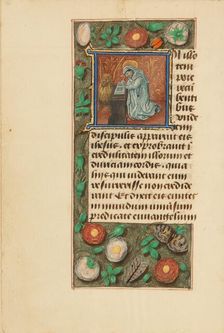 In illo
tem
pore
recu
benti
bus
unde
cim
discipulis apparuit eis
ihesus et exprobravit i
credulitatem illorum et
duriciam cordis quia
hiis qui viderant eum
resurrexisse non credide
runt Et dixit eis euntes
in mundum universum
predicate euvangelium